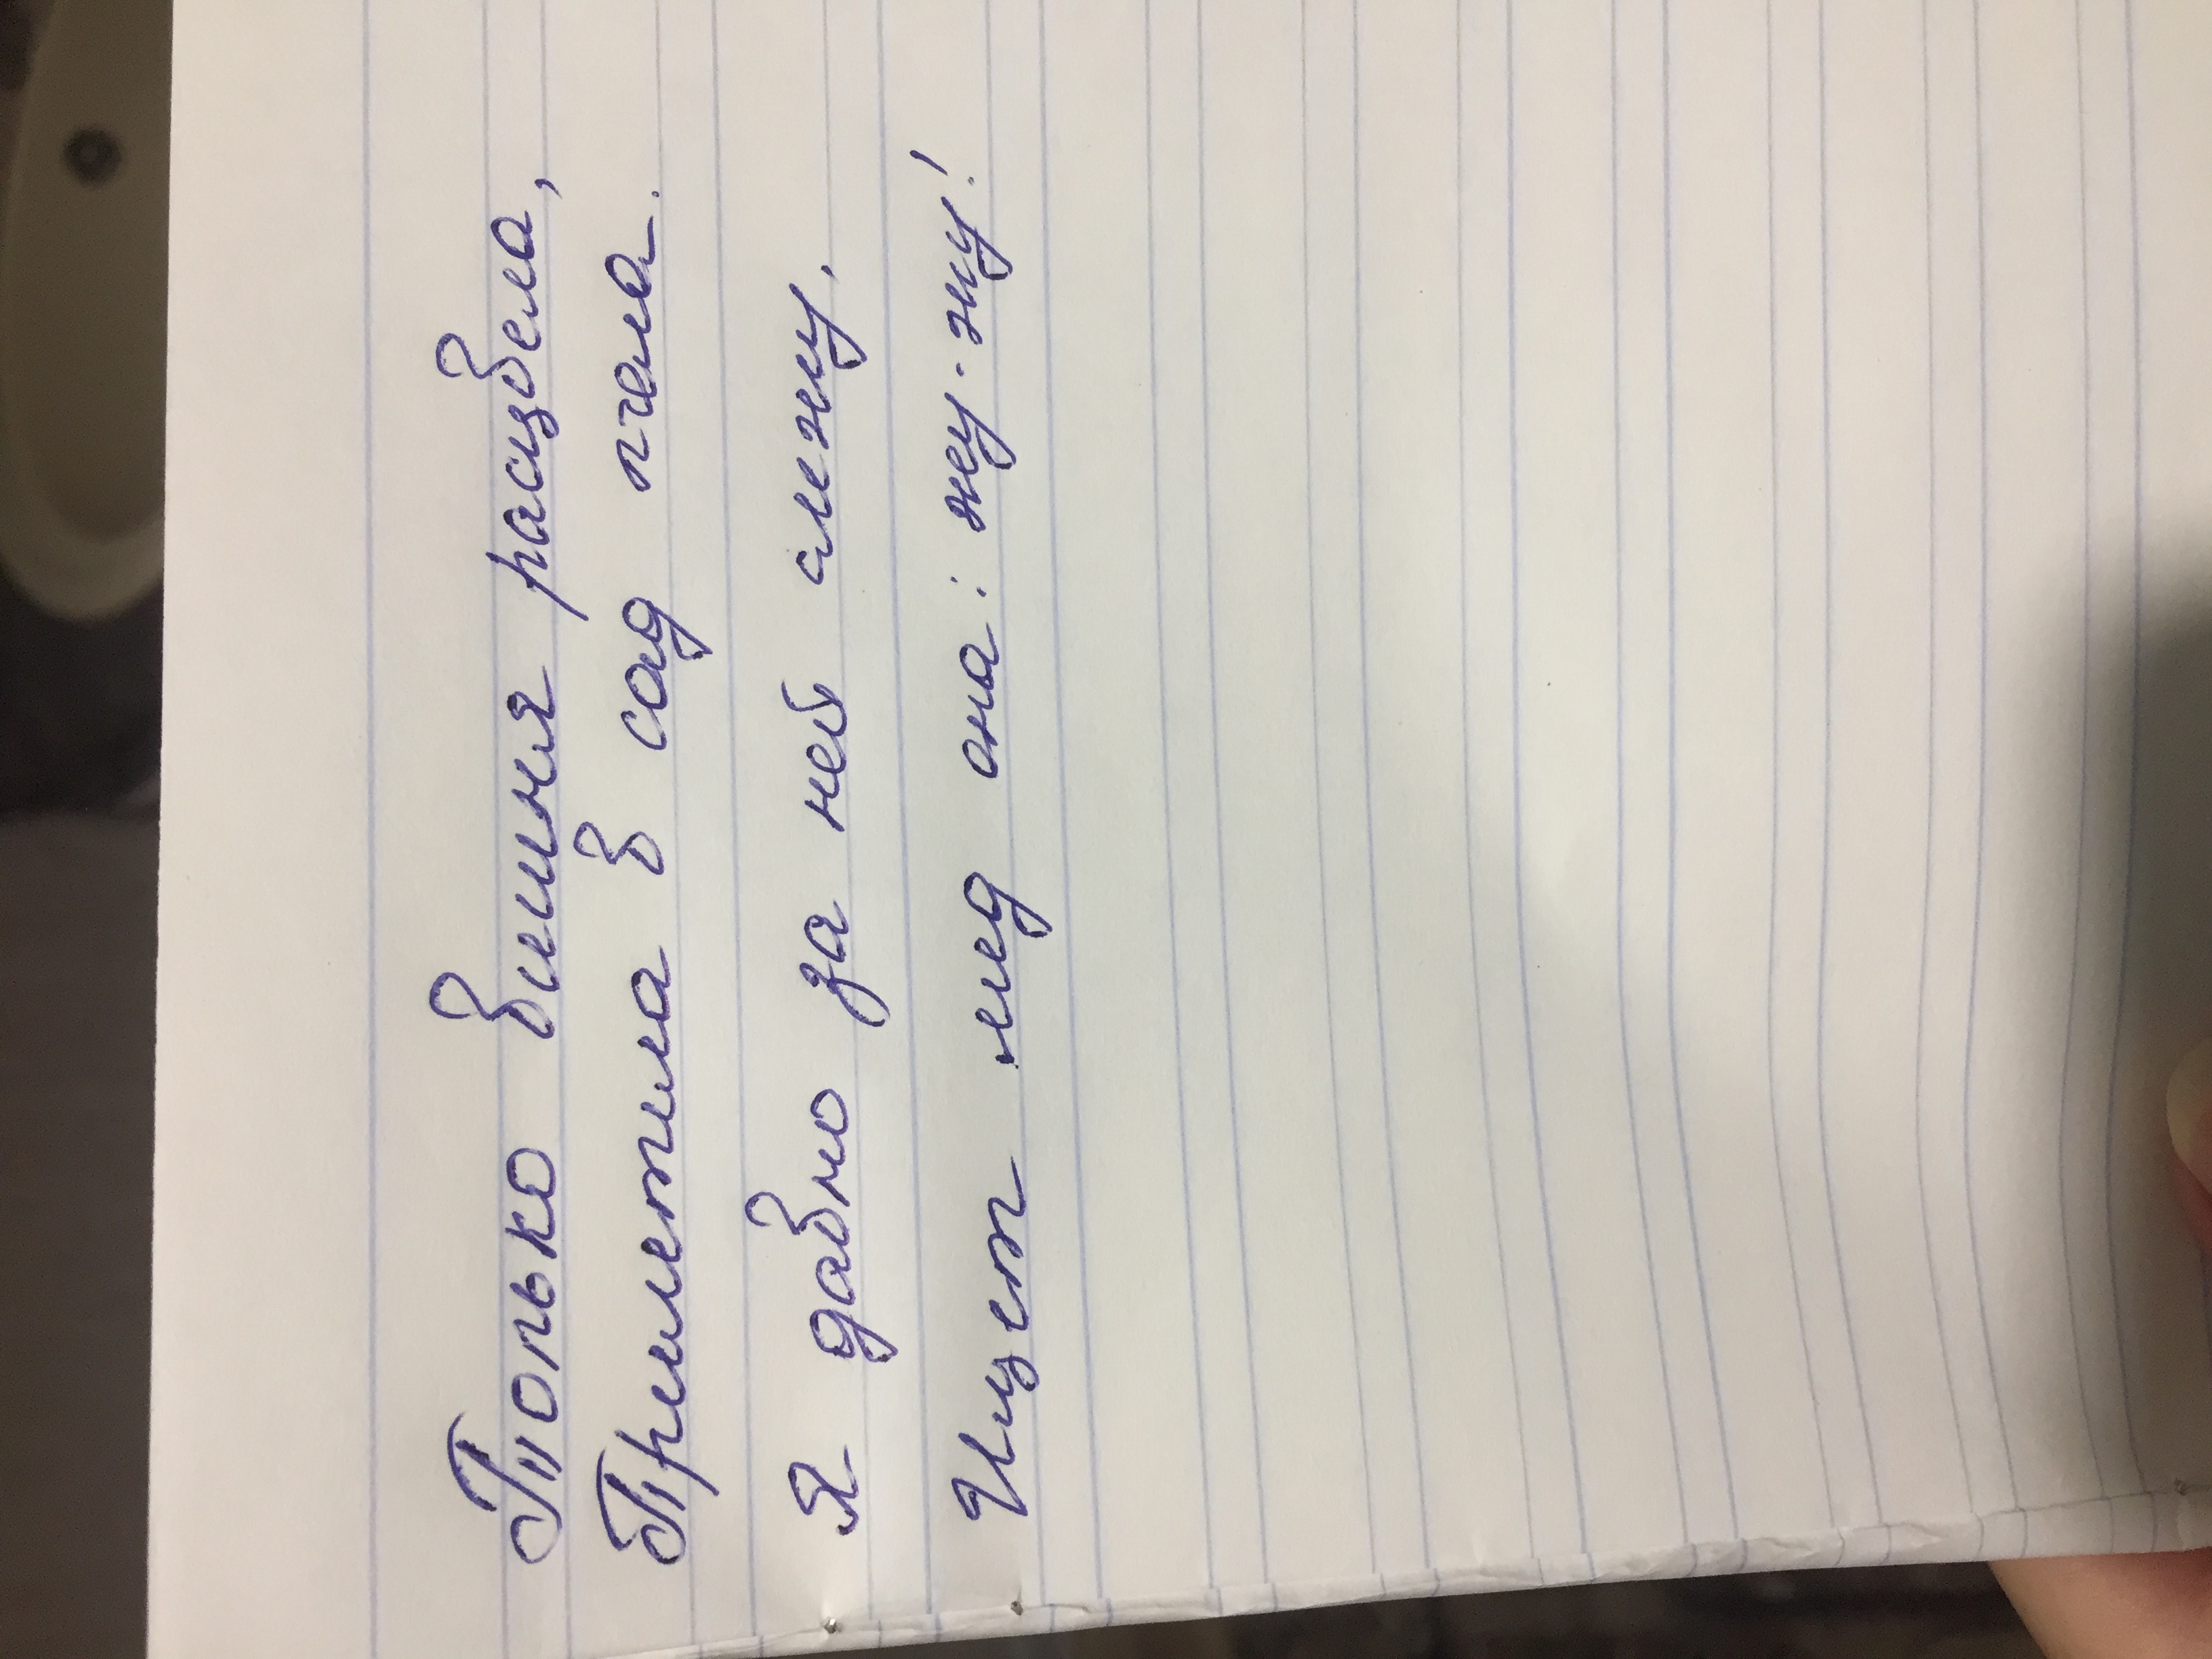 Только вишня расцвела,
Прилетила в сад пчела.
Я давно за ней слежу,
Ищет мед она: жу-жу!